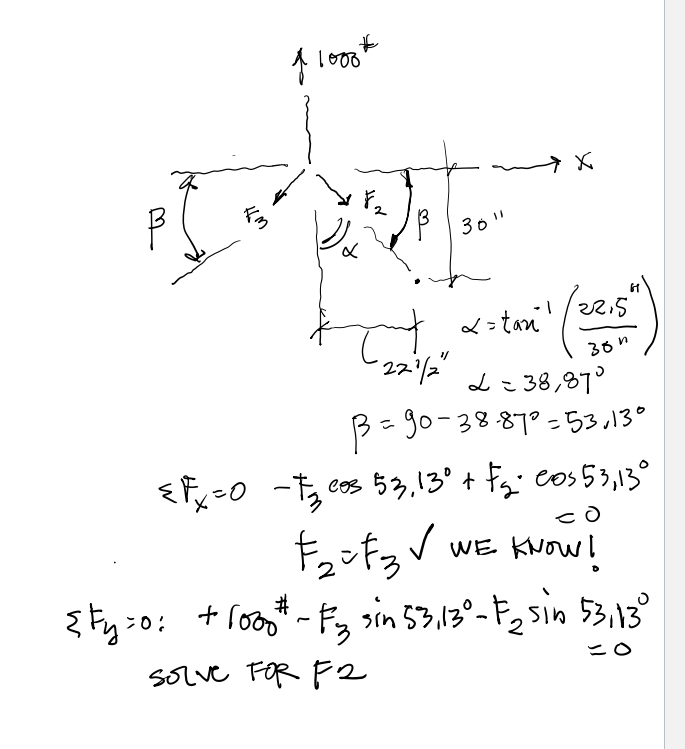 1000#
X
β
F3
F2
β
30"
α
22 1/2"
α = tan⁻¹ (22.5" / 30")
α = 36,87°
β = 90 - 36.87° = 53,13°
ΣFx=0 -F3 cos 53,13° + F2· cos 53,13° = 0
F2 = F3 ✓ WE KNOW!
ΣFy=0: +1000# - F3 sin 53,13° - F2 sin 53,13° = 0
SOLVE FOR F2